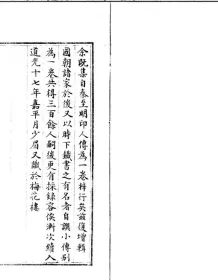 余既集自秦至明印人傳為一卷梓行矣茲復增輯
國朝諸家於後又以時下鐵書之有名者自譔小傳別
為一卷共得三百餘人嗣後更有採錄容俟漸次續入
道光十七年嘉平月少眉又識於梅花樓